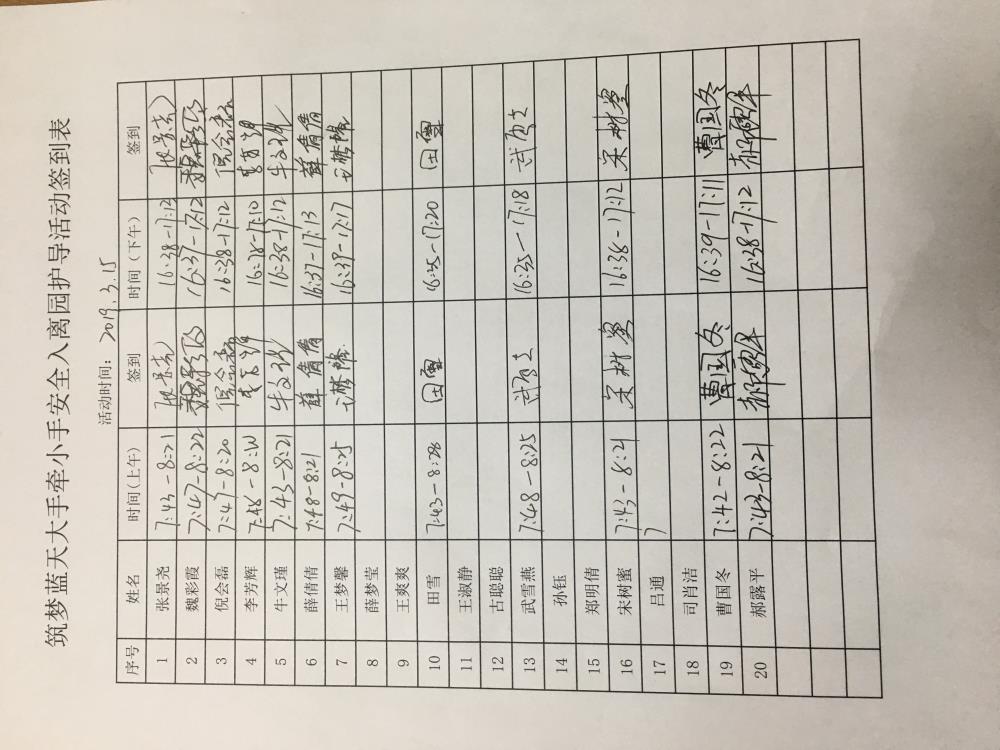 筑梦蓝天大手牵小手安全入离园护导活动签到表
活动时间：2019.3.15
序号 姓名 时间（上午） 签到 时间（下午） 签到
1 张景尧 7:43-8:21 张景尧 16:38-17:12 张景尧
2 魏彩霞 7:47-8:22 魏彩霞 16:37-17:12 魏彩霞
3 倪会磊 7:47-8:20 倪会磊 16:38-17:12 倪会磊
4 李芳辉 7:48-8:20 李芳辉 16:38-17:10 李芳辉
5 牛文瑾 7:43-8:21 牛文瑾 16:38-17:12 牛文瑾
6 薛倩倩 7:48-8:21 薛倩倩 16:37-17:13 薛倩倩
7 王梦馨 7:49-8:25 王梦馨 16:37-17:17 王梦馨
8 薛梦莹
9 王爽爽
10 田雪 7:43-8:28 田雪 16:35-17:20 田雪
11 王淑静
12 古聪聪
13 武雪燕 7:48-8:25 16:35-17:18
14 孙钰
15 郑明倩
16 宋树蜜 7:43-8:21 宋树蜜 16:38-17:12 宋树蜜
17 吕通 7
18 司肖洁
19 曹国冬 7:42-8:22 曹国冬 16:39-17:11 曹国冬
20 郝露平 7:43-8:21 郝露平 16:38-17:12 郝露平